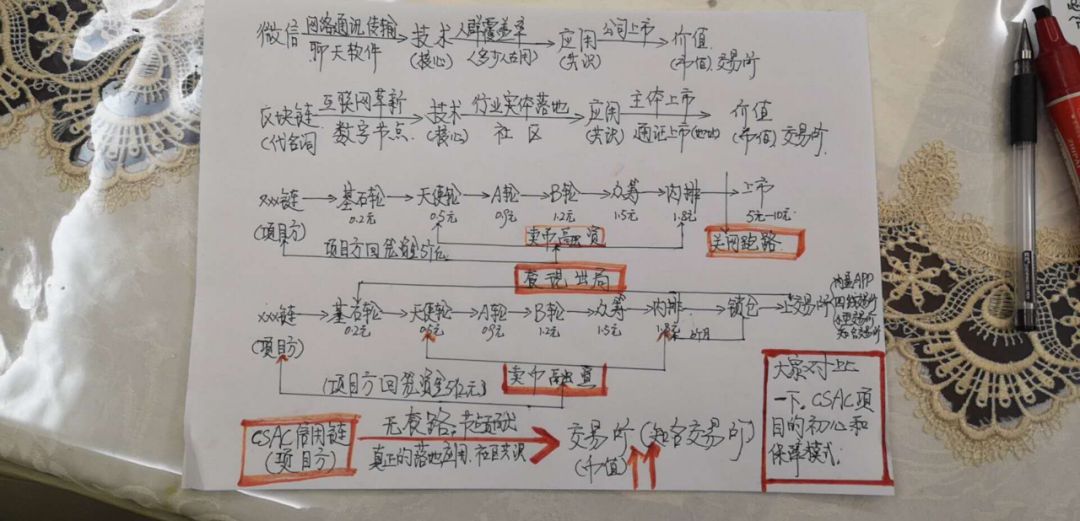 微信 网络通讯传输 技术 人群覆盖率 应用 公司上市 价值
聊天软件 (核心) (多少人在用) (共识) (市值) 交易所
区块链 互联网革新 技术 行业实体落地 应用 主体上市 价值
(代名词 数字节点 (核心) 社区 (共识) 通证上市 (市值) 交易所
xxx链 基石轮 天使轮 A轮 B轮 众筹 内排 上市
0.2元 0.5元 0.9元 1.2元 1.5元 1.8元 5元—10元
(项目方) 卖币融资 关网跑路
项目方回笼资金5亿元
套现出局
内盘APP
xxx链 基石轮 天使轮 A轮 B轮 众筹 内排 锁仓 上交易所
0.2元 0.5元 0.9元 1.2元 1.5元 1.8元 个月
(项目方)
(项目方回笼资金5亿元) 卖币融资
大家对比
一下,CSAC项
目的初心和
保障模式.
CSAC信用链 无套路, 交易所 (知名交易所)
(项目方) 真正的落地应用.社区共识 (市值)